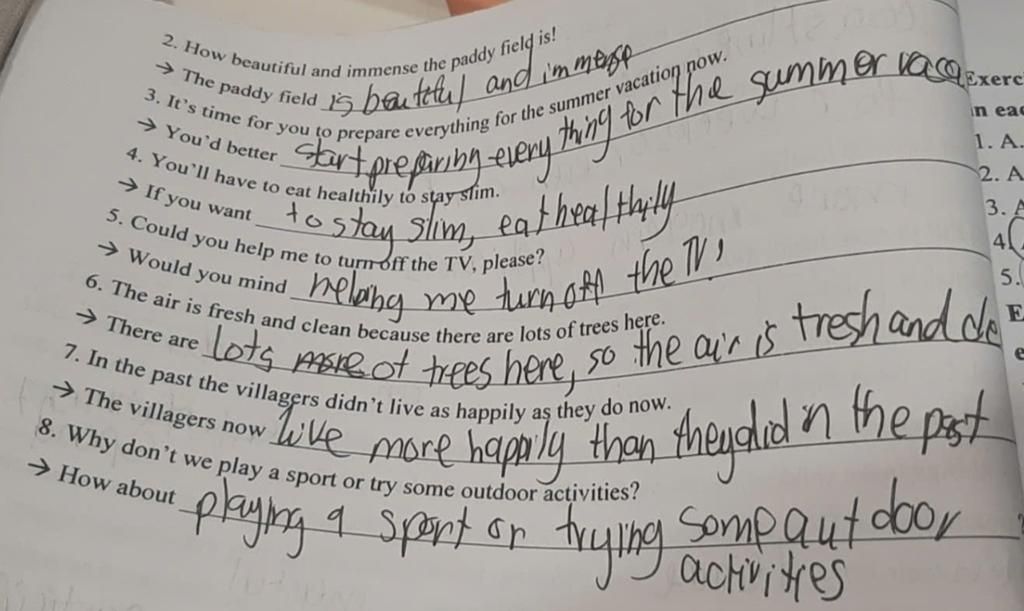 2. How beautiful and immense the paddy field is!
→ The paddy field is beauteful and immense
3. It's time for you to prepare everything for the summer vacation now.
→ You'd better start preparing everything for the summer vaca
4. You'll have to eat healthily to stay slim.
→ If you want to stay slim, eat healthily
5. Could you help me to turn off the TV, please?
→ Would you mind helping me turn off the TV?
6. The air is fresh and clean because there are lots of trees here.
→ There are lots more of trees here, so the air is fresh and cle
7. In the past the villagers didn't live as happily as they do now.
→ The villagers now live more happily than they did in the past
8. Why don't we play a sport or try some outdoor activities?
→ How about playing a sport or trying some outdoor
activities
Exerc
in ea
1. A.
2. A
3. A
4.
5.
E
e